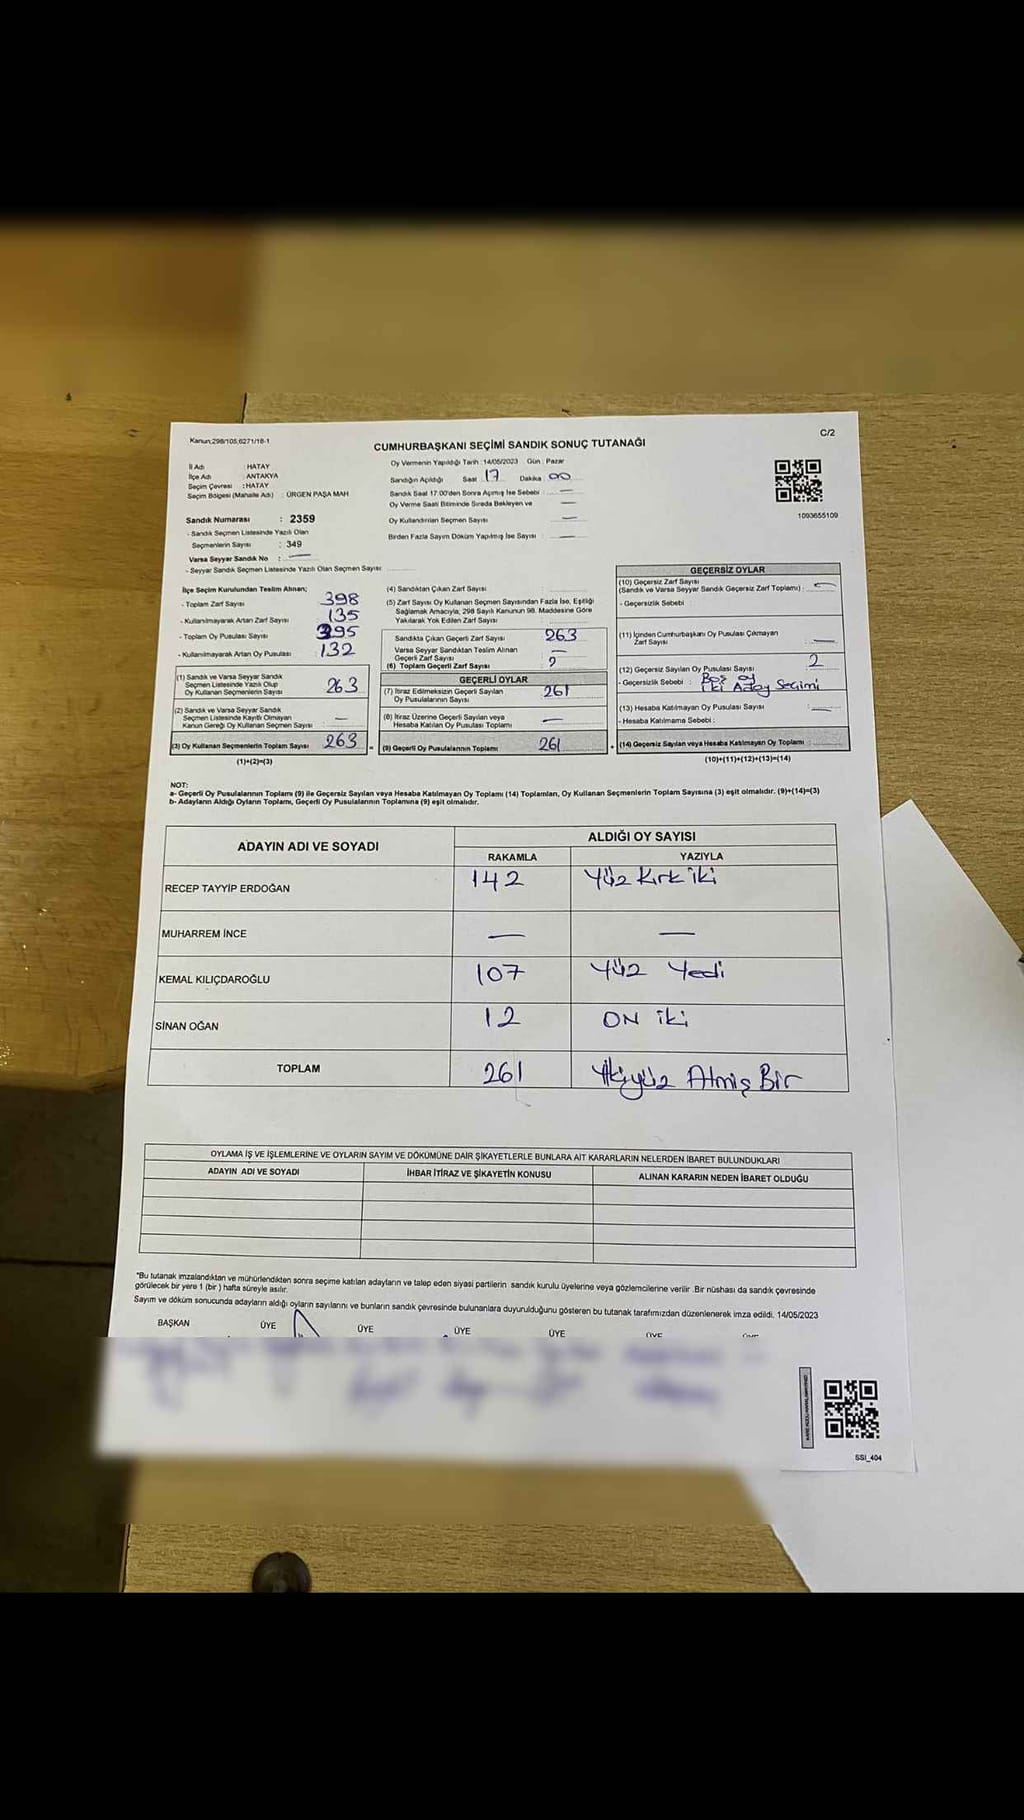 Kanun:298/105,6271/18-1
C/2
CUMHURBAŞKANI SEÇİMİ SANDIK SONUÇ TUTANAĞI
İl Adı : HATAY
İlçe Adı : ANTAKYA
Seçim Çevresi : HATAY
Seçim Bölgesi (Mahalle Adı) : ÜRGEN PAŞA MAH
Sandık Numarası : 2359
- Sandık Seçmen Listesinde Yazılı Olan
Seçmenlerin Sayısı : 349
Varsa Seyyar Sandık No : —
- Seyyar Sandık Seçmen Listesinde Yazılı Olan Seçmen Sayısı
Oy Vermenin Yapıldığı Tarih : 14/05/2023 Gün : Pazar
Sandığın Açıldığı Saat : 17 Dakika : 00
Sandık Saat 17:00'den Sonra Açılmış İse Sebebi : —
Oy Verme Saati Bitiminde Sırada Bekleyen ve —
Oy Kullandırılan Seçmen Sayısı —
Birden Fazla Sayım Döküm Yapılmış İse Sayısı —
1093655109
İlçe Seçim Kurulundan Teslim Alınan;
- Toplam Zarf Sayısı 398
- Kullanılmayarak Artan Zarf Sayısı 135
- Toplam Oy Pusulası Sayısı 395
- Kullanılmayarak Artan Oy Pusulası : 132
(1) Sandık ve Varsa Seyyar Sandık
Seçmen Listesinde Yazılı Olup
Oy Kullanan Seçmenlerin Sayısı 263
(2) Sandık ve Varsa Seyyar Sandık
Seçmen Listesinde Kayıtlı Olmayan
Kanun Gereği Oy Kullanan Seçmen Sayısı : —
(3) Oy Kullanan Seçmenlerin Toplam Sayısı 263
(1)+(2)=(3)
=
(4) Sandıktan Çıkan Zarf Sayısı
(5) Zarf Sayısı Oy Kullanan Seçmen Sayısından Fazla İse, Eşitliği
Sağlamak Amacıyla, 298 Sayılı Kanunun 98. Maddesine Göre
Yakılarak Yok Edilen Zarf Sayısı
Sandıkta Çıkan Geçerli Zarf Sayısı 263
Varsa Seyyar Sandıktan Teslim Alınan
Geçerli Zarf Sayısı —
(6) Toplam Geçerli Zarf Sayısı
GEÇERLİ OYLAR
(7) İtiraz Edilmeksizin Geçerli Sayılan
Oy Pusulalarının Sayısı 261
(8) İtiraz Üzerine Geçerli Sayılan veya
Hesaba Katılan Oy Pusulası Toplamı —
(9) Geçerli Oy Pusulalarının Toplamı 261
+
GEÇERSİZ OYLAR
(10) Geçersiz Zarf Sayısı
(Sandık ve Varsa Seyyar Sandık Geçersiz Zarf Toplamı) : —
- Geçersizlik Sebebi :
(11) İçinden Cumhurbaşkanı Oy Pusulası Çıkmayan
Zarf Sayısı —
(12) Geçersiz Sayılan Oy Pusulası Sayısı 2
- Geçersizlik Sebebi : Boş oy
İki Aday Seçimi
(13) Hesaba Katılmayan Oy Pusulası Sayısı : —
- Hesaba Katılmama Sebebi :
(14) Geçersiz Sayılan veya Hesaba Katılmayan Oy Toplamı :
(10)+(11)+(12)+(13)=(14)
NOT:
a- Geçerli Oy Pusulalarının Toplamı (9) ile Geçersiz Sayılan veya Hesaba Katılmayan Oy Toplamı (14) Toplamları, Oy Kullanan Seçmenlerin Toplam Sayısına (3) eşit olmalıdır. (9)+(14)=(3)
b- Adayların Aldığı Oyların Toplamı, Geçerli Oy Pusulalarının Toplamına (9) eşit olmalıdır.
ADAYIN ADI VE SOYADI
ALDIĞI OY SAYISI
RAKAMLA YAZIYLA
RECEP TAYYİP ERDOĞAN 142 Yüz Kırk iki
MUHARREM İNCE — —
KEMAL KILIÇDAROĞLU 107 Yüz Yedi
SİNAN OĞAN 12 ON iki
TOPLAM 261 İkiyüz Atmış Bir
OYLAMA İŞ VE İŞLEMLERİNE VE OYLARIN SAYIM VE DÖKÜMÜNE DAİR ŞİKAYETLERLE BUNLARA AİT KARARLARIN NELERDEN İBARET BULUNDUKLARI
ADAYIN ADI VE SOYADI İHBAR İTİRAZ VE ŞİKAYETİN KONUSU ALINAN KARARIN NEDEN İBARET OLDUĞU
*Bu tutanak imzalandıktan ve mühürlendikten sonra seçime katılan adayların ve talep eden siyasi partilerin sandık kurulu üyelerine veya gözlemcilerine verilir .Bir nüshası da sandık çevresinde
görülecek bir yere 1 (bir ) hafta süreyle asılır.
Sayım ve döküm sonucunda adayların aldığı oyların sayılarını ve bunların sandık çevresinde bulunanlara duyurulduğunu gösteren bu tutanak tarafımızdan düzenlenerek imza edildi. 14/05/2023
BAŞKAN ÜYE ÜYE ÜYE ÜYE ÜYE
SSI_404